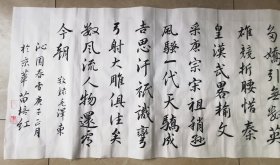 嬌引無數英
雄競折腰惜秦
皇漢武略輸文
采唐宗宋祖稍遜
風騷一代天驕成
吉思汗祇識彎
弓射大雕俱往矣
數風流人物還看
今朝 敬錄毛澤東
沁園春雪庚子正月
於京華苗